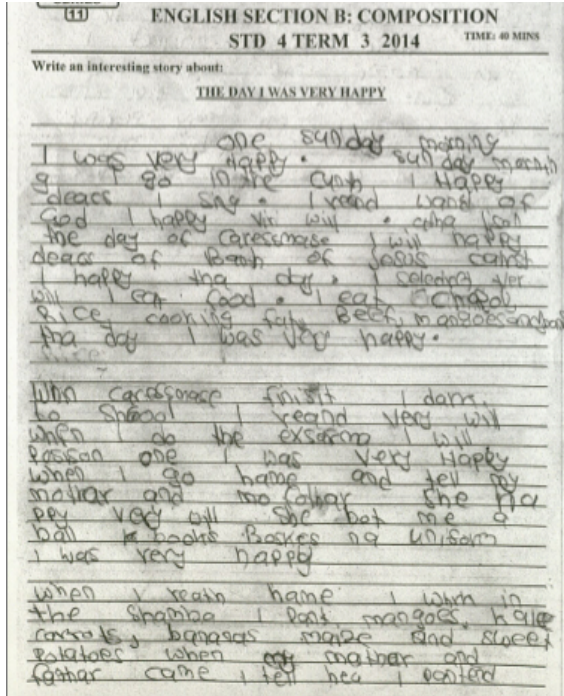 SERIES
11
ENGLISH SECTION B: COMPOSITION
STD 4 TERM 3 2014 TIME: 40 MINS
Write an interesting story about:
THE DAY I WAS VERY HAPPY
one sunday morning
I was very Happy. sunday mornin
g I go in the I Happy
deacs I sng. I reand ward of
God I happy vir will.
the day of caressmase I will happy
deacs of Bath of Jesus
I happy tha day. I
will I eat food. I eat chapay
Rice, cooking fat, Beef, mangoes
tha day I was very happy.
Whn caressmase finisit I
to shcool I reand very will
when I do the I will
Position one I was very Happy
when I go hame and tell my
mathar and mo fathar She Ha
ppy very will She bot me a
ball books uniform
I was very happy
when I reath hame I in
the Shamba I Pant, mangoes,
carrots, bananas maize and sweet
Potatoes when my mathar and
fathar came I tell hea I panted